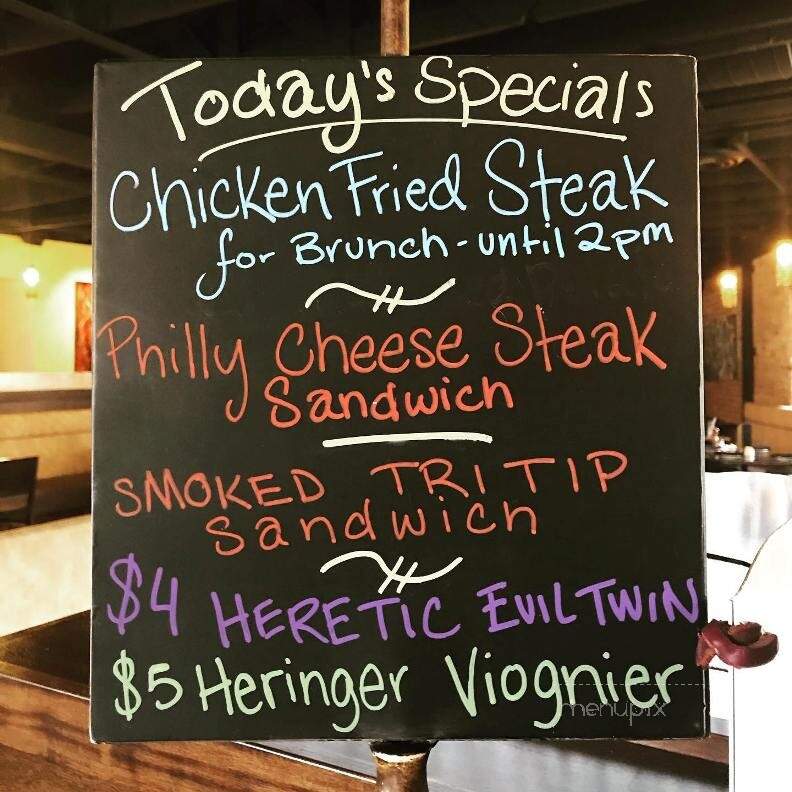 Today's Specials
Chicken Fried Steak
for Brunch - until 2pm
Philly Cheese Steak
Sandwich
SMOKED TRI TIP
Sandwich
$4 HERETIC EVIL TWIN
$5 Heringer Viognier
menupix